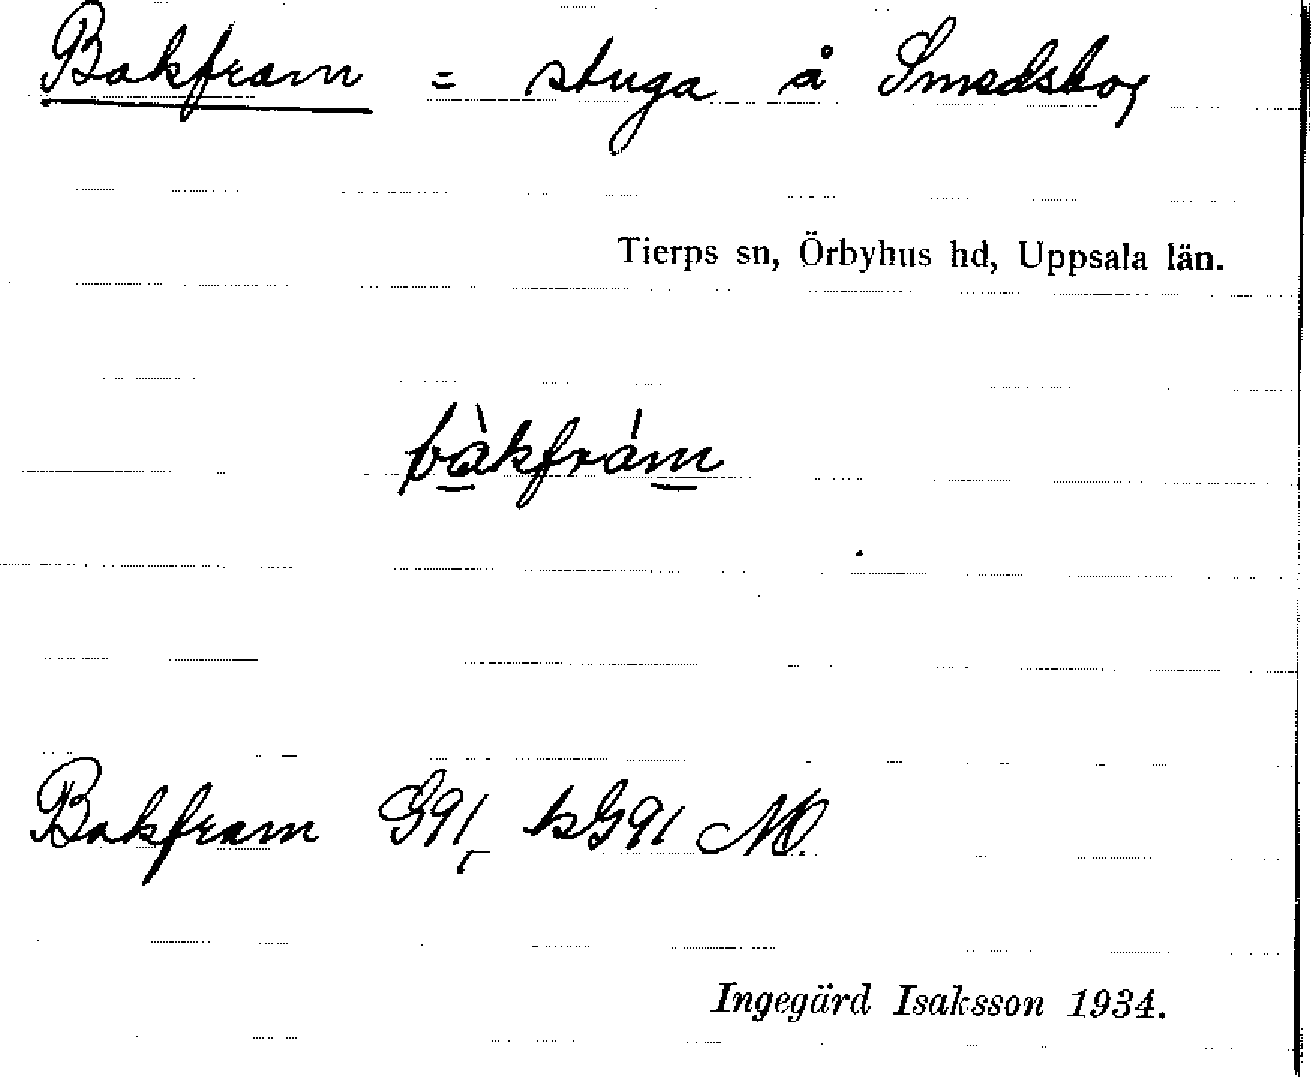 Bakfram = stuga å Smedsbog
Tierps sn, Örbyhus hd, Uppsala län.
bàkfrám
Bakfram G91, ksG91 MO
Ingegärd Isaksson 1934.